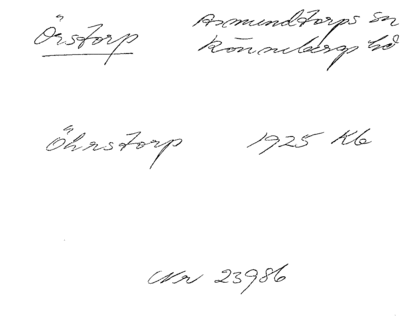 Örstorp Asmundtorps sn
Rönnebergs hd
Öhrstorp 1925 Kb
Nr 23986